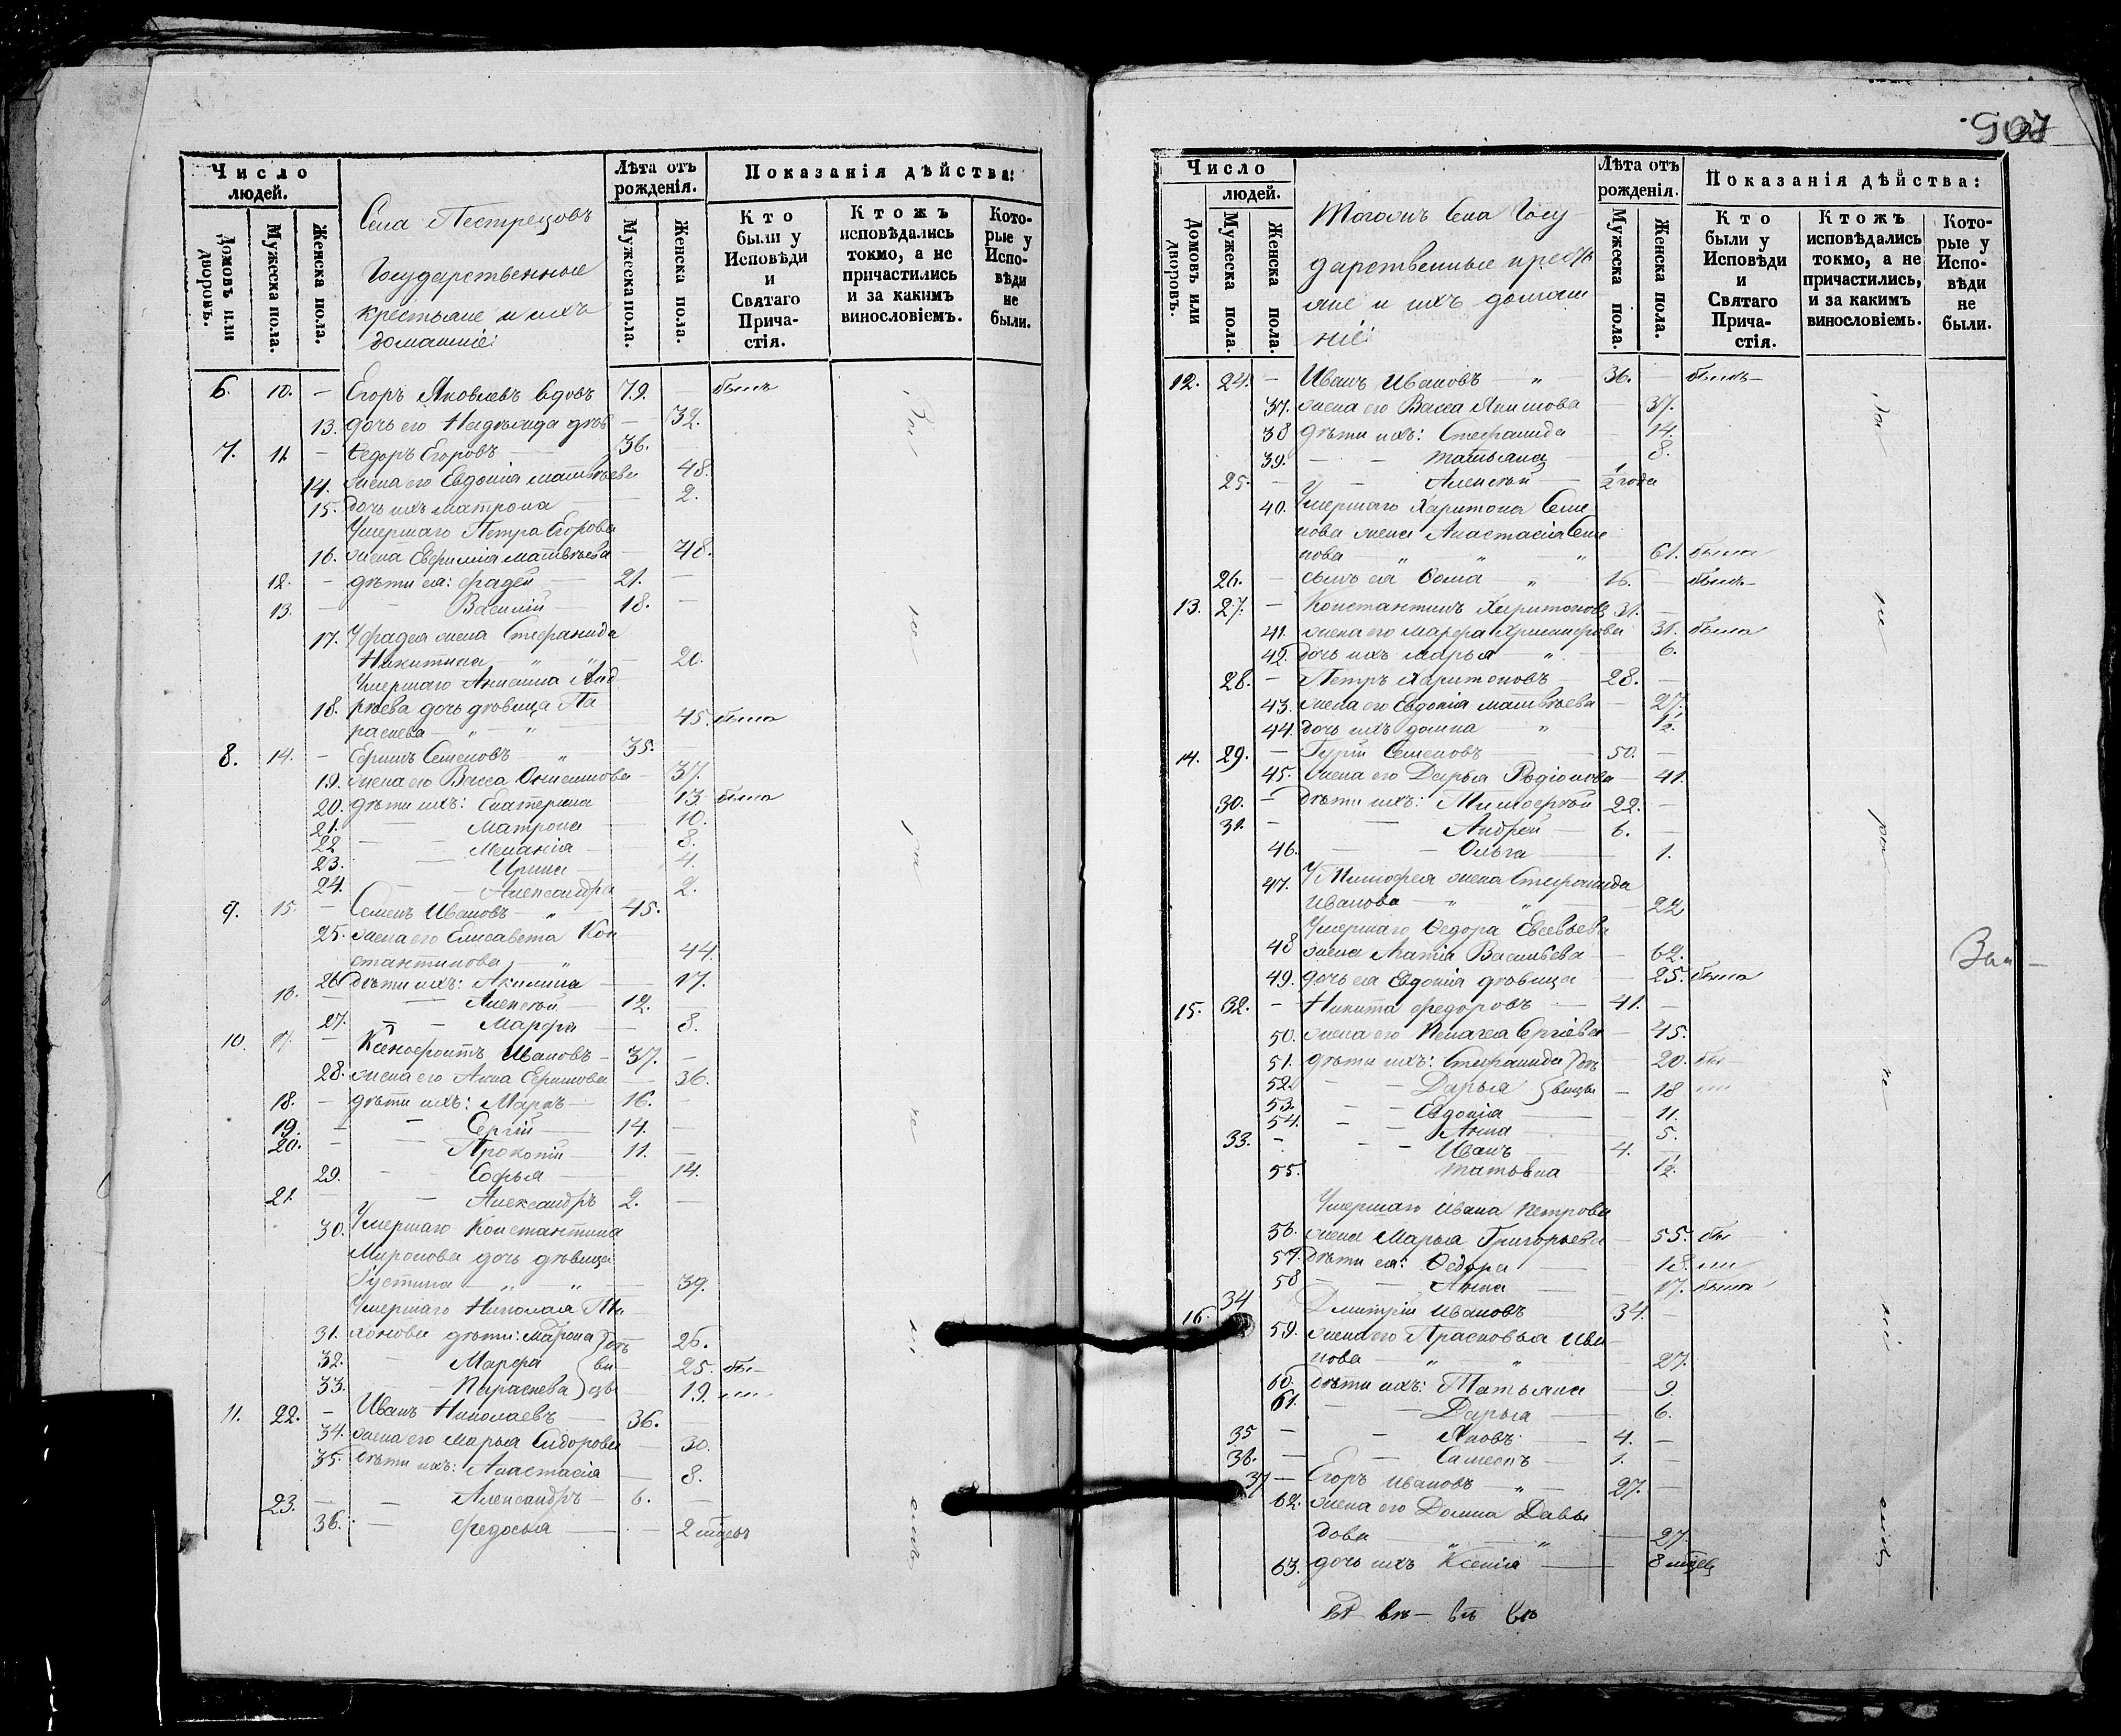 Число людей.
Домовъ или дворовъ.
Мужеска пола.
Женска пола.
Села Пестрецовъ
Государственные
крестьяне и ихъ
домашніе:
Лѣта отъ рожденія.
Мужеска пола.
Женска пола.
Показанія дѣйства:
Кто были у Исповѣди и Святаго Причастія.
Ктожъ исповѣдались токмо, а не причастились и за какимъ винословіемъ.
Которые у Исповѣди не были.
6. 10. – Егоръ Яковлевъ вдовъ 79. – былъ
13. дочь его Надежда – 32.
7. 11. – Ѳедоръ Егоровъ 36. –
14. жена его Евдокія Матвѣева 48.
15. дочь ихъ Матрона 2.
Умершаго Петра Егорова
16. жена Евфимія Матвѣева – 48.
12. – дѣти ея: Фадей – 21. –
13. – – Василій – 18. –
17. У Фадея жена Стефанида
Никитина – „ „ – 20.
Умершаго Анисима Анд
18. рѣева дочь дѣвица Па
раскева – „ – „ 45. была
8. 14. – Ефимъ Семеновъ – „ 35.
19. жена его Васса Онисимова – 37.
20. дѣти ихъ: Екатерина 13. была
21. – Матрона 10.
22 – – Меланія 8.
23. – Ирина 4.
24. – – Александра 2.
9. 15. – Семенъ Ивановъ – „ – 45.
25. жена его Елисавета Кон
стантинова – „ 44.
26 дѣти ихъ: Акилина – 17.
16. – – Алексѣй – 12. –
27. – – Марфа – 8.
10. 17. – Ксенофонтъ Ивановъ – 37. –
28. жена его Анна Ефимова – 36.
18. – дѣти ихъ: Маркъ – 16. –
19. – – Сергій – 14. –
20. – – Прокопій – 11. –
29. – – Софья – 14.
21. – Александръ 2. –
30. Умершаго Константина
Миронова дочь дѣвица
Устина – „ „ – 39.
Умершаго Николая Ти
31. хонова дѣти: Матрона дѣ 26.
32. – Марфа ви 25. бы–
33. – Параскева цы 19. ли
11. 22. – Иванъ Николаевъ – 36. –
34. жена его Марья Сидорова – 30.
35. дѣти ихъ: Анастасія – 8.
23. – – Александръ – 6. –
36. – Ѳедосья – – 2 мѣсев
907
Число людей.
Домовъ или дворовъ.
Мужеска пола.
Женска пола.
Тогожъ Села Госу
дарственные крестья
не и ихъ домаш
ніе:
Лѣта отъ рожденія.
Мужеска пола.
Женска пола.
Показанія дѣйства:
Кто были у Исповѣди и Святаго Причастія.
Ктожъ исповѣдались токмо, а не причастились, и за какимъ винословіемъ.
Которые у Исповѣди не были.
12. 24. – Иванъ Ивановъ – „ 36. – былъ–
37. жена его Васса Якимова – 37.
38 дѣти ихъ: Стефанида – 14.
39. – – Татьяна – 8.
25. – – Алексѣй – 1/2 года
40. Умершаго Харитона Семе
нова жена Анастасія Семе
нова „ „ „ – 61. была
26. – сынъ ея Ѳома „ 16. – былъ–
13. 27. – Константинъ Харитоновъ 31. –
41. жена его Марфа 31. была
42. дочь ихъ Марья – „ – 6.
28. – Петръ Харитоновъ – 28. –
43. жена его Евдокія Матвѣева – 27.
44. дочь ихъ Домна – „ – 1/2.
14. 29. – Гурій Семеновъ – 50. –
45. жена его Дарья Родіонова – 41.
30. – дѣти ихъ: Тимофей 22. –
31. – – Андрей – 6. –
46. – – Ольга – 1.
47. У Тимофея жена Стефанида
Иванова – „ „ – 22
Умершаго Ѳедора Евсевьева
48 жена Агапія Васильева – 62.
49. дочь ея Евдокія дѣвица – 25. была
15. 32. – Никита Федоровъ – 41. –
50. жена его Пелагея Сергіева – 45.
51. дѣти ихъ: Стефанида дѣ 20. бы
52. – – Дарья вицы – 18 ли
53. – – Евдокія – 11.
54. – – Анна – 5.
33. – – – Иванъ – 4. –
55. Татьяна – 1/2.
Умершаго Ивана Петрова
56. жена Марья Григорьева – 55. бы
57. дѣти ея: Ѳедора – 18. ли
58 – – Анна – 17. была
16. 34 Дмитрій Ивановъ 34.
59. жена его Прасковья Ива
нова – „ – „ – 27.
60. дѣти ихъ: Татьяна – 9.
61. – – Дарья – 6.
35 – – Яковъ – 4. –
36. – – Самсонъ – 1. –
37 – Егоръ Ивановъ – „ – 27. –
62. жена его Домна Давы
дова „ „ – 27.
63. дочь ихъ Ксенія – 8 мѣсев